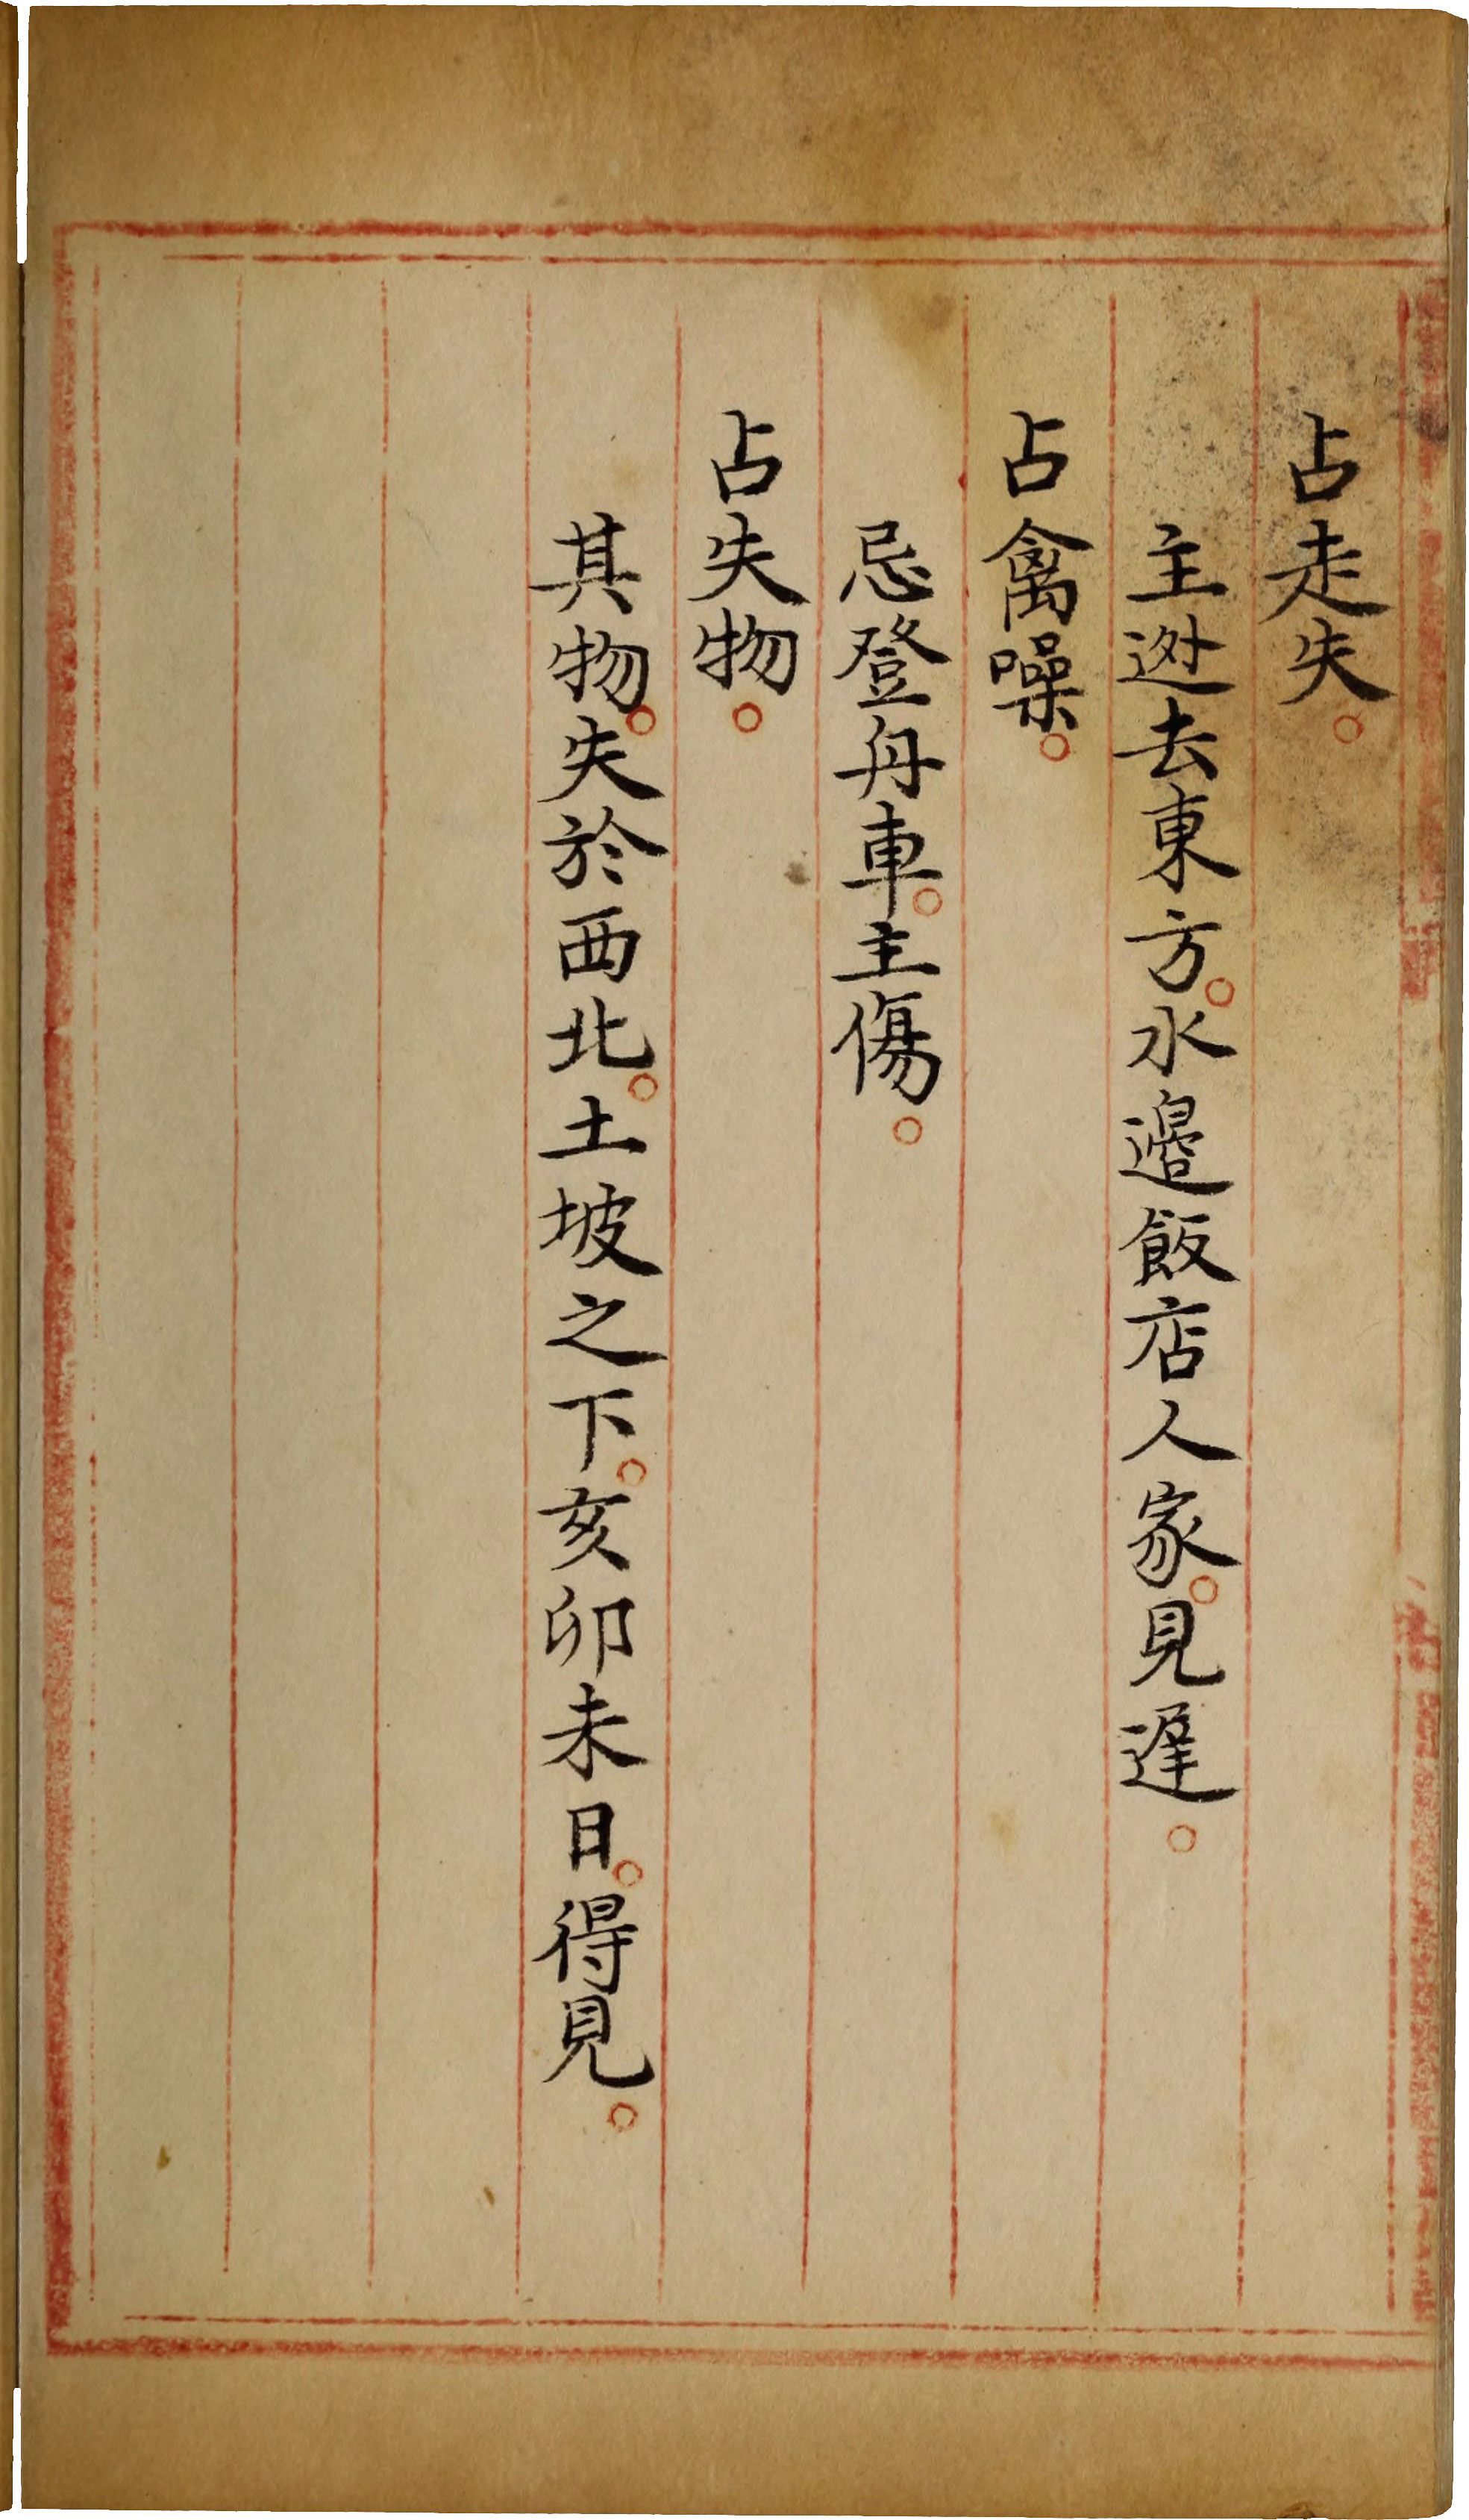 占走失。
主逃去東方。水邉飯店人家。見遲。
占禽噪。
忌登舟車。主傷。
占失物。
其物。失於西北。土坡之下。亥卯未日。得見。